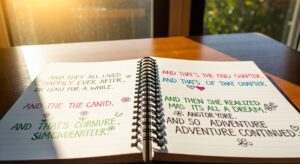 AND THEY ALL LIVED
HAPPILY EVER AFTER.
OF LEAST FOR A WHILE.
AND THE THE CANID.
AND THAT'S CORNURE.
SIMCNUENITEER.
AND THAT'S THE END CHAPTER.
AND THAT'S OF THAT CHAPTER.
AND THEN SHE REALIZED
MAS IT'S ALL A DREAM,
AND SO ADVENTURE
ADVENTURE CONTINUED.